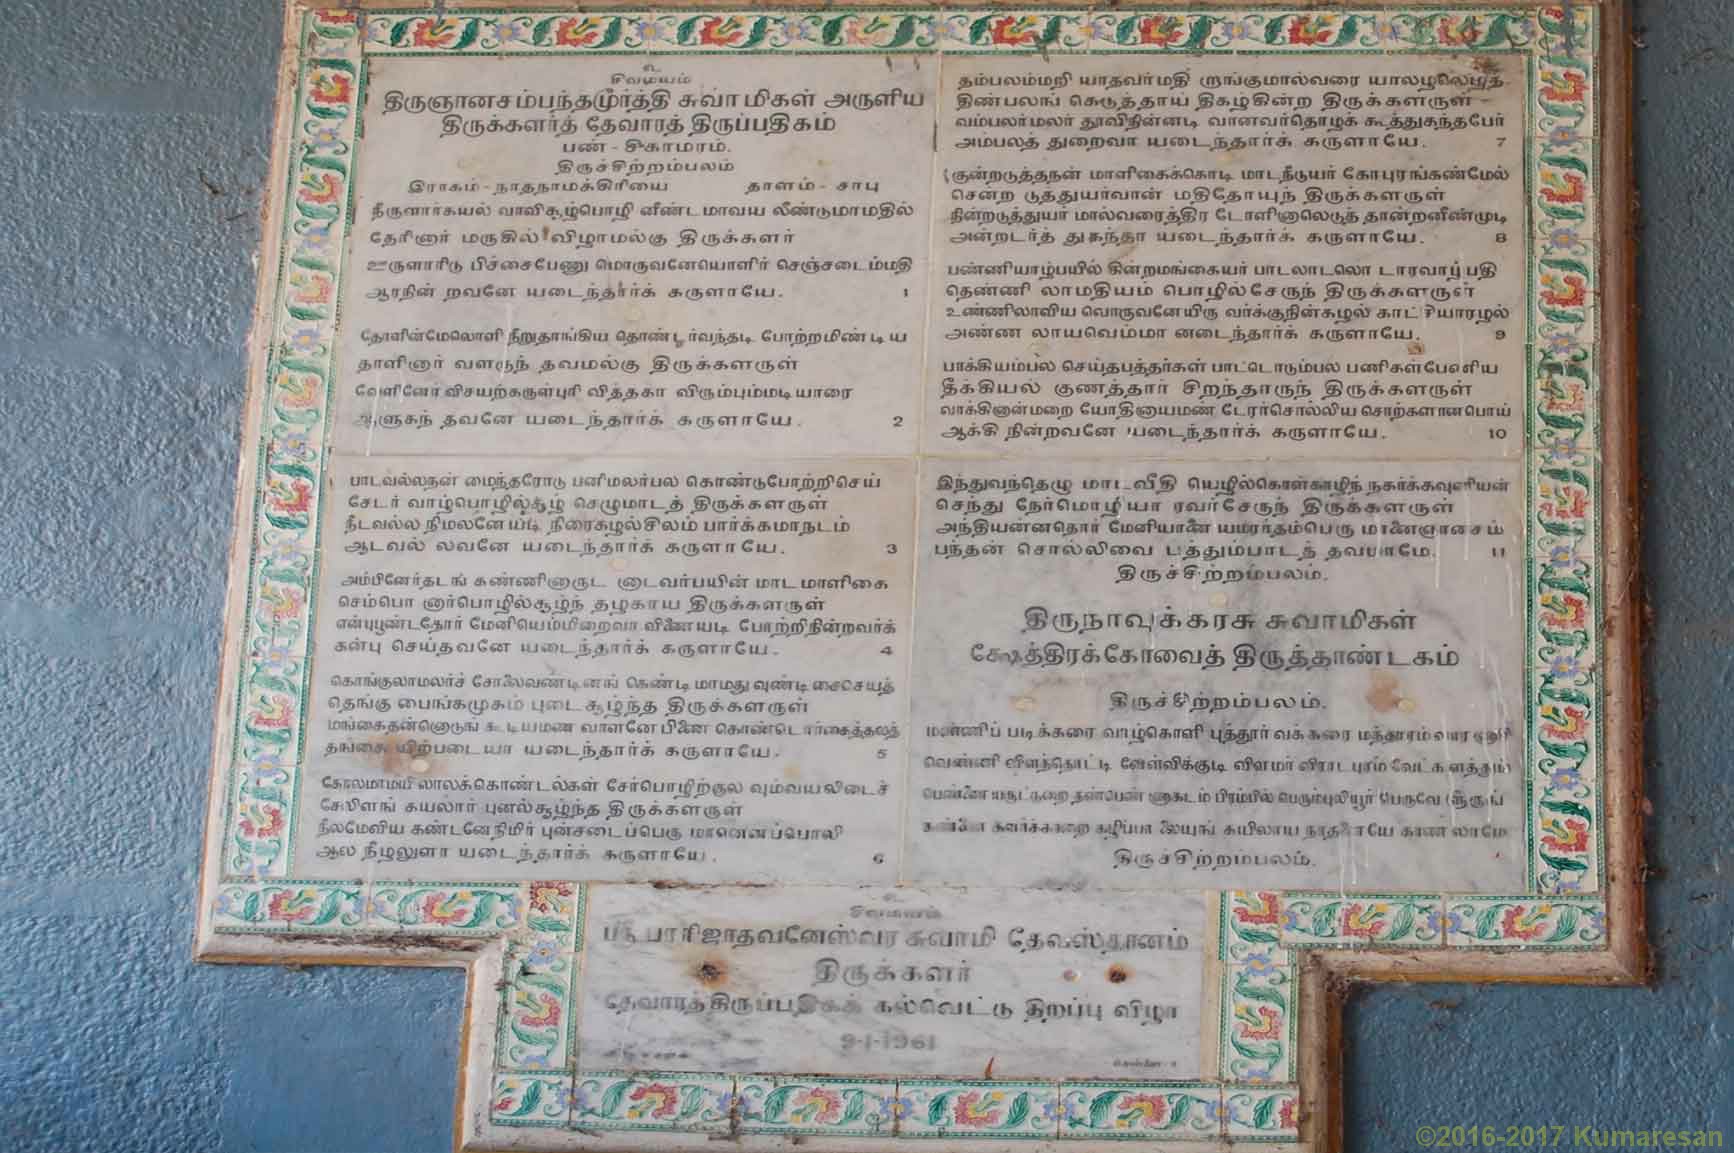 உ
சிவமயம்
திருஞானசம்பந்தமூர்த்தி சுவாமிகள் அருளிய
திருக்களர்த் தேவாரத் திருப்பதிகம்
பண் - சீகாமரம்.
திருச்சிற்றம்பலம்
இராகம் - நாதநாமக்கிரியை தாளம் - சாபு
நீருளார்கயல் வாவிசூழ்பொழி னீண்டமாவய லீண்டுமாமதில்
தேரினார் மருகில் விழாமல்கு திருக்களர்
ஊருளாரிடு பிச்சைபேணு மொருவனேயொளிர் செஞ்சடைம்மதி
ஆரநின் றவனே யடைந்தார்க் கருளாயே. 1
தோளின்மேலொளி நீறுதாங்கிய தொண்டர்வந்தடி போற்றமிண்டிய
தாளினார் வளருந் தவமல்கு திருக்களருள்
வேளினேர்விசயற்கருள்புரி வித்தகா விரும்பும்மடியாரை
ஆளுகந் தவனே யடைந்தார்க் கருளாயே. 2
பாடவல்லநன் மைந்தரோடு பனிமலர்பல கொண்டுபோற்றிசெய்
சேடர் வாழ்பொழில்சூழ் செழுமாடத் திருக்களருள்
நீடவல்ல நிமலனேயடி நிரைகழல்சிலம் பார்க்கமாநடம்
ஆடவல் லவனே யடைந்தார்க் கருளாயே. 3
அம்பினேர்தடங் கண்ணினாருட னாடவர்பயின் மாடமாளிகை
செம்பொ னார்பொழில்சூழ்ந் தழகாய திருக்களருள்
என்புபூண்டதோர் மேனியெம்மிறைவா விணையடி போற்றிநின்றவர்க்
கன்பு செய்தவனே யடைந்தார்க் கருளாயே. 4
கொங்குலாமலர்ச் சோலைவண்டினங் கெண்டி மாமதுவுண்டிசைசெயத்
தெங்கு பைங்கமுகம் புடைசூழ்ந்த திருக்களருள்
மங்கைதன்னொடுங் கூடியமண வாளனே பிணை கொண்டொர்கைத்தலத்
தங்கை யிற்படையா யடைந்தார்க் கருளாயே. 5
கோலமாமயி லாலக்கொண்டல்கள் சேர்பொழிற்குல வும்வயலிடைச்
சேலிளங் கயலார் புனல்சூழ்ந்த திருக்களருள்
நீலமேவிய கண்டனேநிமிர் புன்சடைப்பெரு மானெனப்பொலி
ஆல நீழலுளா யடைந்தார்க் கருளாயே. 6
தம்பலம்மறி யாதவர்மதி றாங்குமால்வரை யாலழலெழுத்
திண்பலங் கெடுத்தாய் திகழ்கின்ற திருக்களருள்
வம்பலர்மலர் தூவிநின்னடி வானவர்தொழக் கூத்துகந்தபேர்
அம்பலத் துறைவா யடைந்தார்க் கருளாயே. 7
குன்றடுத்தநன் மாளிகைக்கொடி மாடநீடுயர் கோபுரங்கண்மேல்
சென்ற டுத்துயர்வான் மதிதோயுந் திருக்களருள்
நின்றடுத்துயர் மால்வரைத்திர டோளினாலெடுத் தான்றனீண்முடி
அன்றடர்த் துகந்தா யடைந்தார்க் கருளாயே. 8
பண்ணியாழ்பயில் கின்றமங்கையர் பாடலாடலொ டாரவாழ்பதி
தெண்ணி லாமதியம் பொழில்சேருந் திருக்களருள்
உண்ணிலாவிய வொருவனேயிரு வர்க்குநின்கழல் காட்சியாரழல்
அண்ண லாயவெம்மா னடைந்தார்க் கருளாயே. 9
பாக்கியம்பல செய்தபத்தர்கள் பாட்டொடும்பல பணிகள்பேணிய
தீக்கியல் குணத்தார் சிறந்தாருந் திருக்களருள்
வாக்கினான்மறை யோதினாயமண் டேரர்சொல்லிய சொற்களானபொய்
ஆக்கி நின்றவனே யடைந்தார்க் கருளாயே. 10
இந்துவந்தெழு மாடவீதி யெழில்கொள்காழிந் நகர்க்கவுணியன்
செந்து நேர்மொழியா ரவர்சேருந் திருக்களருள்
அந்தியன்னதொர் மேனியானை யமரர்தம்பெரு மானைஞானசம்
பந்தன் சொல்லிவை பத்தும்பாடத் தவமாமே. 11
திருச்சிற்றம்பலம்.
திருநாவுக்கரசு சுவாமிகள்
க்ஷேத்திரக்கோவைத் திருத்தாண்டகம்
திருச்சிற்றம்பலம்.
மண்ணிப் படிக்கரை வாழ்கொளி புத்தூர் வக்கரை மந்தாரம் வாரணாசி
வெண்ணி விளத்தொட்டி வேள்விக்குடி விளமர் விராடபுரம் வேட்களத்தும்
பெண்ணை யருட்டுறை தண்பெண் ணாகடம் பிரம்பில் பெரும்புலியூர் பெருவேளூருங்
கண்ணை களர்க்காறை கழிப்பா லையுங் கயிலாய நாதனையே காண லாமே
திருச்சிற்றம்பலம்.
உ
சிவமயம்
ஸ்ரீ பாரிஜாதவனேஸ்வர சுவாமி தேவஸ்தானம்
திருக்களர்
தேவாரத்திருப்பதிகக் கல்வெட்டு திறப்பு விழா
9-1-1961
©2016-2017 Kumaresan